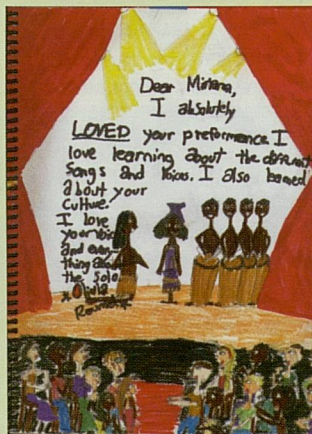 Dear Miriana,
I absolutely
LOVED your preformance. I
love learning about the different
Songs and Voices. I also learned
about your
Culture.
I love
your voice
and every
thing about
the solo